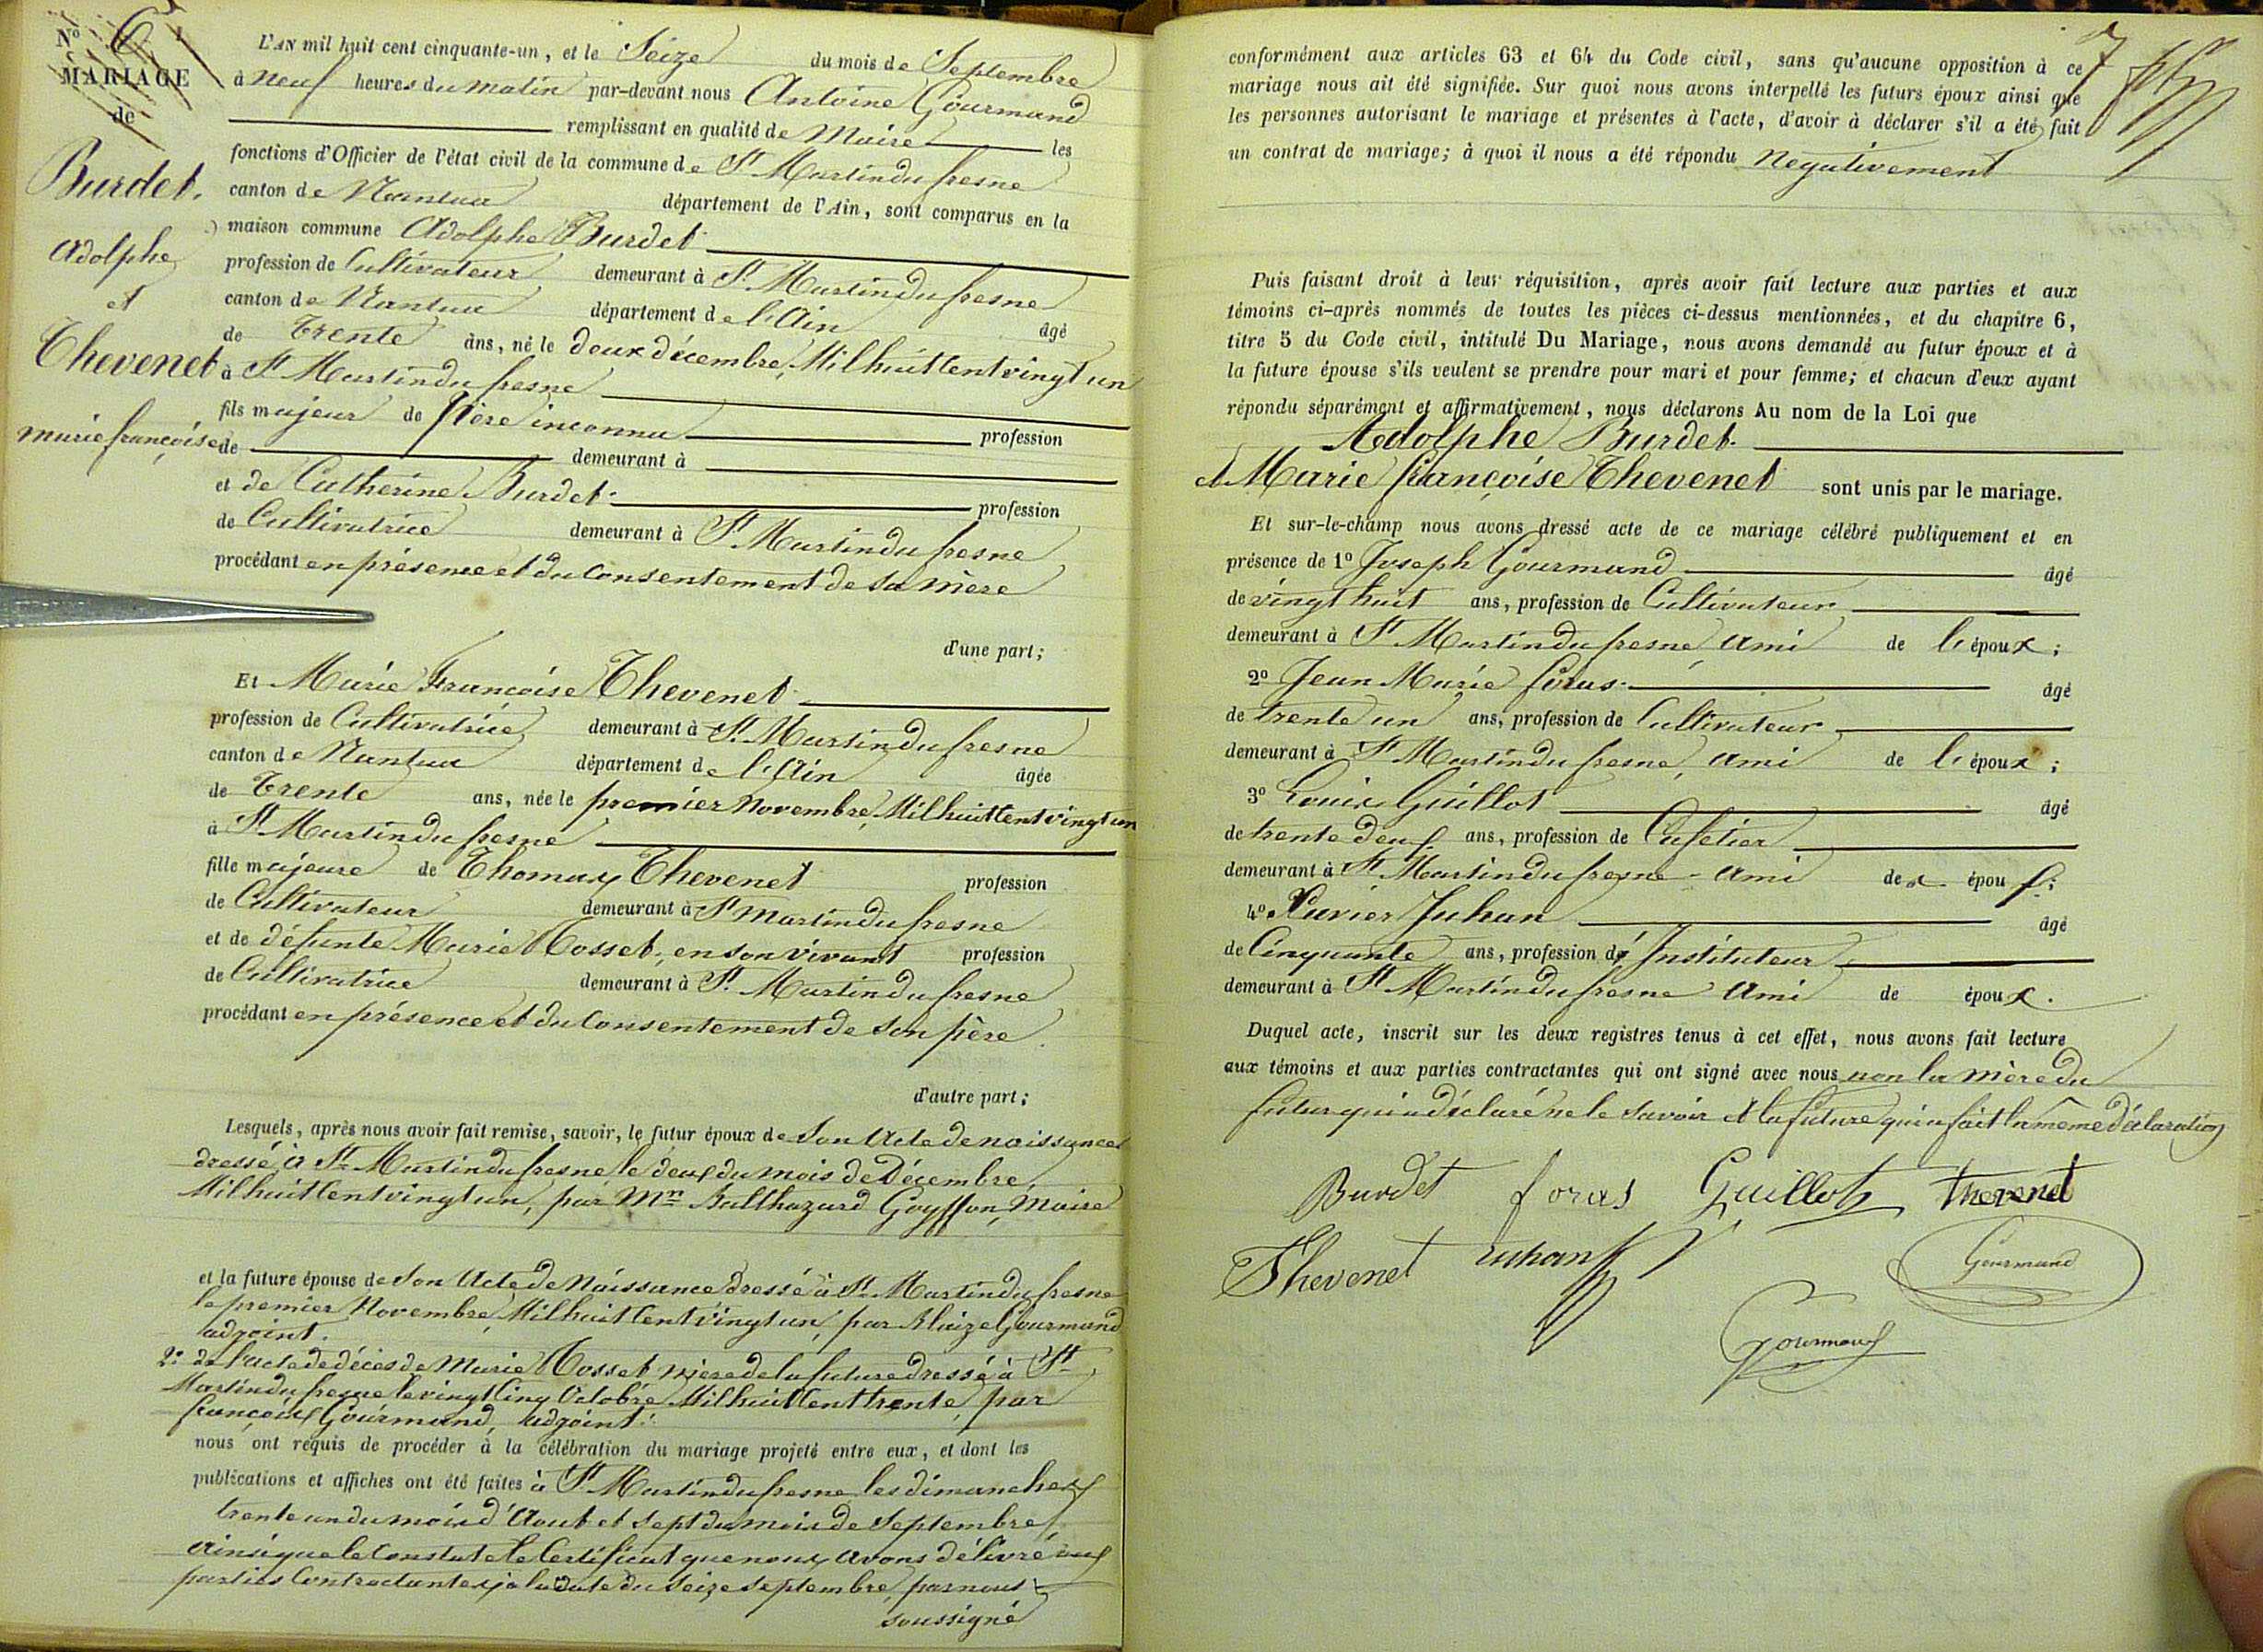 N° 6
MARIAGE
de
Burdet.
Adolphe
et
Thevenet
marie françoise
L'AN mil huit cent cinquante-un, et le Seize du mois de Septembre
à neuf heures du matin par-devant nous Antoine Gourmand
remplissant en qualité de Maire les
fonctions d'Officier de l'état civil de la commune de St Martin du fresne
canton de Nantua département de l'Ain, sont comparus en la
maison commune Adolphe Burdet
profession de Cultivateur demeurant à St Martin du fresne
canton de Nantua département de l'Ain âgé
de trente ans, né le deux décembre, Mil huit Cent vingt un
à St Martin du fresne
fils majeur de père inconnu profession
de demeurant à
et de Catherine Burdet profession
de Cultivatrice demeurant à St Martin du fresne
procédant en présence et du Consentement de sa mère
d'une part;
Et Marie Françoise Thevenet
profession de Cultivatrice demeurant à St Martin du fresne
canton de Nantua département de l'Ain âgée
de trente ans, née le premier Novembre, Mil huit Cent vingt un
à St Martin du fresne
fille majeure de Thomas Thevenet profession
de Cultivateur demeurant à St Martin du fresne
et de défunte Marie Cosset, en son vivant profession
de Cultivatrice demeurant à St Martin du fresne
procédant en présence et du Consentement de Son père
d'autre part;
Lesquels, après nous avoir fait remise, savoir, le futur époux de Son Acte de naissance
dressé à St Martin du fresne, le deux du mois de Décembre,
Mil huit Cent vingt un, par Mr Balthazard Goyffon, Maire
et la future épouse de Son Acte de Naissance dressé à St Martin du fresne
le premier Novembre, Mil huit Cent vingt un, par Blaize Gourmand
adjoint.
2° de l'acte de décès de Marie Cosset mère de la future dressé à St
Martin du fresne le vingt Cinq Octobre Mil huit Cent trente, par
françois Gourmand, adjoint.
nous ont requis de procéder à la célébration du mariage projeté entre eux, et dont les
publications et affiches ont été faites à St Martin du fresne les dimanches
trente un du mois d'Aout et sept du mois de Septembre
ainsi que le Constate le Certificat que nous avons délivré aux
parties Contractantes, à la date du seize septembre, par nous
soussigné
7
conformément aux articles 63 et 64 du Code civil, sans qu'aucune opposition à ce
mariage nous ait été signifiée. Sur quoi nous avons interpellé les futurs époux ainsi que
les personnes autorisant le mariage et présentes à l'acte, d'avoir à déclarer s'il a été fait
un contrat de mariage; à quoi il nous a été répondu Negativement
Puis faisant droit à leur réquisition, après avoir fait lecture aux parties et aux
témoins ci-après nommés de toutes les pièces ci-dessus mentionnées, et du chapitre 6,
titre 5 du Code civil, intitulé Du Mariage, nous avons demandé au futur époux et à
la future épouse s'ils veulent se prendre pour mari et pour femme; et chacun d'eux ayant
répondu séparément et affirmativement, nous déclarons Au nom de la Loi que
Adolphe Burdet
et Marie françoise Thevenet sont unis par le mariage.
Et sur-le-champ nous avons dressé acte de ce mariage célébré publiquement et en
présence de 1° Joseph Gourmand âgé
de vingt huit ans, profession de Cultivateur
demeurant à St Martin du fresne, ami de l'époux;
2° Jean Marie foras âgé
de trente un ans, profession de Cultivateur
demeurant à St Martin du fresne, ami de l'époux;
3° Louis Guillot âgé
de trente deux ans, profession de Cafetier
demeurant à St Martin du fresne - ami de époux;
4° Xavier Juhan âgé
de Cinquante ans, profession d' Instituteur
demeurant à St Martin du fresne Ami de époux.
Duquel acte, inscrit sur les deux registres tenus à cet effet, nous avons fait lecture
aux témoins et aux parties contractantes qui ont signé avec nous non la mère du
futur qui a déclaré ne le savoir et la future qui a fait la même déclaration
Burdet foras Guillot Thevenet
Thevenet Juhan Gourmand
Gourmand